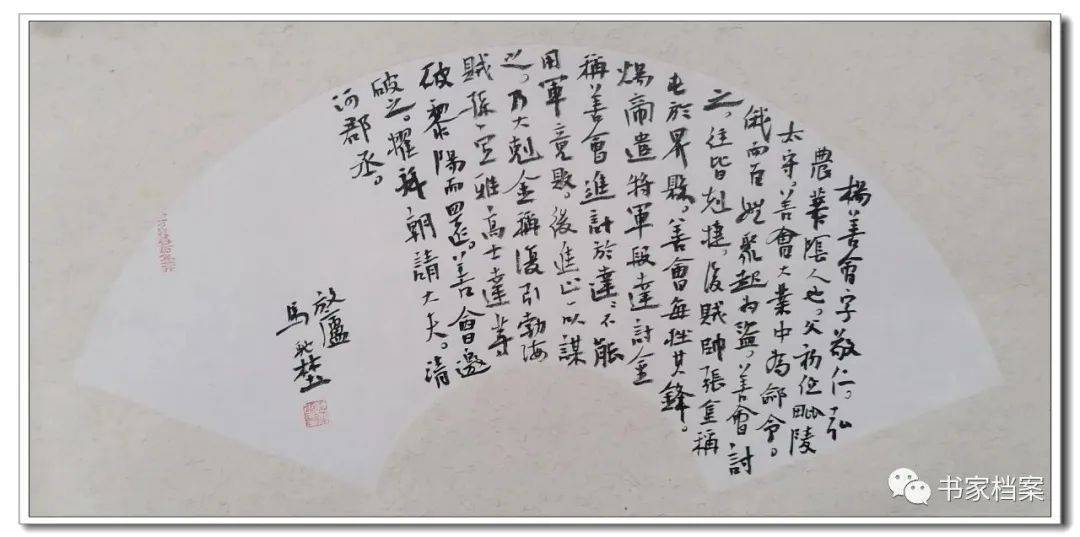 楊善會字敬仁。弘
農華陰人也。父初位毗陵
太守。善會大業中為鄃令。
俄而百姓聚起為盜。善會討
之。往皆剋捷。後賊帥張金稱
屯於界縣。善會每挫其鋒。
煬帝遣將軍段達討金
稱善會進計於達。達不能
用軍竟敗。後進止一以謀
之。乃大剋金稱復引勃海
賊孫宣雅高士達等
破黎陽而還。善會邀
破之。擢拜朝請大夫。清
河郡丞。
放廬
馬
书家档案